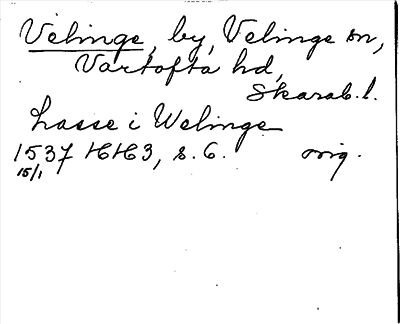 Velinge, by, Velinge sn,
Vartofta hd,
Skarab.l.
Lasse i Welinge
1537 HH3, s. 6. orig.
15/1